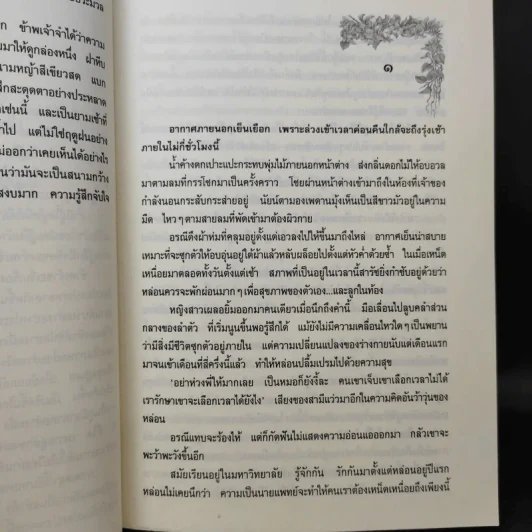 ก ข้าพเจ้าจำได้ว่าความ
มาให้ดูกล่องหนึ่ง ฝาหีบ
นามหญ้าสีเขียวสด แบก
ึกสะดุดตาอย่างประหลาด
เช่นนี้ และเป็นยามเช้าที่
ไป แต่ไม่ใช่ฤดูฝนอย่าง
ม่ออกว่าเคยเห็นได้อย่างไร
นว่ามันจะเป็นสนามกว้าง
งบมาก ความรู้สึกจับใจ
๑
อากาศภายนอกเย็นเยือก เพราะล่วงเข้าเวลาค่อนคืนใกล้จะถึงรุ่งเช้า
ภายในไม่กี่ชั่วโมงนี้
น้ำค้างตกเปาะแปะกระทบพุ่มไม้ภายนอกหน้าต่าง ส่งกลิ่นดอกไม้ให้อบอวล
มาตามลมที่กรรโชกมาเป็นครั้งคราว โชยผ่านหน้าต่างเข้ามาถึงในห้องที่เจ้าของ
กำลังนอนกระสับกระส่ายอยู่ นัยน์ตามองเพดานมุ้งเห็นเป็นสีขาวมัวอยู่ในความ
มืด ไหวๆ ตามสายลมที่พัดเข้ามาต้องผิวกาย
อรณีดึงผ้าห่มที่คลุมอยู่ตั้งแต่เอวลงไปให้ขึ้นมาถึงไหล่ อากาศเย็นน่าสบาย
เหมาะที่จะซุกตัวให้อบอุ่นอยู่ใต้ผ้าแล้วหลับผล็อยไปตั้งแต่หัวค่ำด้วยซ้ำ ในเมื่อเหน็ด
เหนื่อยมาตลอดทั้งวันตั้งแต่เช้า สภาพที่เป็นอยู่ในเวลานี้สารัชยิ่งกำชับอยู่ด้วยว่า
หล่อนควรจะพักผ่อนมากๆ เพื่อสุขภาพของตัวเอง...และลูกในท้อง
หญิงสาวเผลอยิ้มออกมาคนเดียวเมื่อนึกถึงคำนี้ มือเลื่อนไปลูบคลำส่วน
กลางของลำตัว ที่เริ่มนูนขึ้นพอรู้สึกได้ แม้ยังไม่มีความเคลื่อนไหวใดๆ เป็นพยาน
ว่ามีสิ่งมีชีวิตซุกตัวอยู่ภายใน แต่ความเปลี่ยนแปลงของร่างกายนับแต่เดือนแรก
มาจนเข้าเดือนที่สี่ครึ่งนี้แล้ว ทำให้หล่อนปลื้มเปรมไปด้วยความสุข
'อย่าห่วงพี่ให้มากเลย เป็นหมอก็ยังงี้ละ คนเขาเจ็บเขาเลือกเวลาไม่ได้
เรารักษาเขาจะเลือกเวลาได้ยังไง' เสียงของสามีแว่วมาอีกในความคิดอันว้าวุ่นของ
หล่อน
อรณีแทบจะร้องไห้ แต่ก็กัดฟันไม่แสดงความอ่อนแอออกมา กลัวเขาจะ
พะว้าพะวังขึ้นอีก
สมัยเรียนอยู่ในมหาวิทยาลัย รู้จักกัน รักกันมาตั้งแต่หล่อนอยู่ปีแรก
หล่อนไม่เคยนึกว่า ความเป็นนายแพทย์จะทำให้คนเราต้องเหน็ดเหนื่อยถึงเพียงนี้